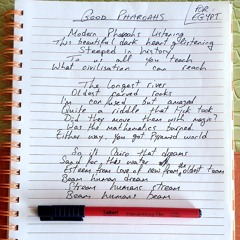 GOOD PHAROAHS
FOR:
EGYPT
Modern Pharaohs listening
This beautiful dark heart glistening
Steeped in history
To us all you teach
What civilisation can reach
The longest river
Oldest carved rocks
I'm confused but amazed
Quite a riddle that tick tock
Did they move them with magic?
Was the mathematics burned
Either way, you got Pyramid world
So ill Cairo that dreams
Sand for this water
Esteem from love of new from oldest town
Beam human dream
Stream humans stream
Beam humans beam